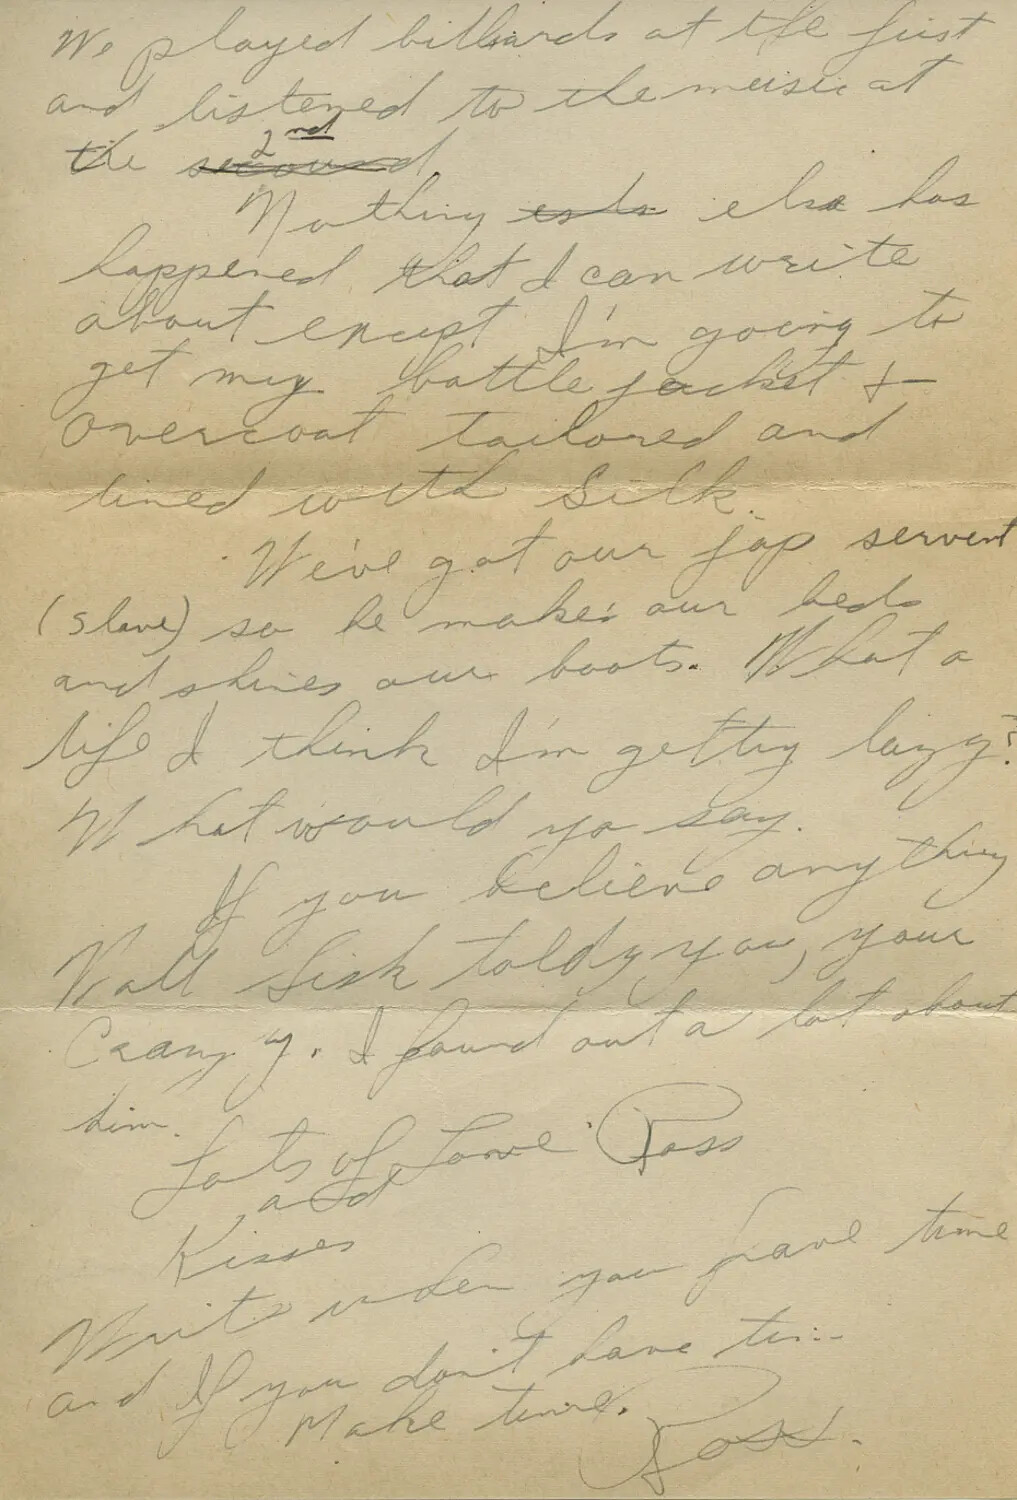 We played billiards at the first
and listened to the music at
the second 2nd
Nothing esls else has
happened that I can write
about except I'm going to
get my battle jacket &
overcoat tailored and
lined with silk.
We've got our jap servent
(slave) so he makes our beds
and shines our boots. What a
life I think I'm getting lazy?
What would yo say.
If you believe anything
Walt Sisk told you, your
Crazy. I found out a lot about
him.
Lots of Love Ross
and
Kisses
Write when you have time
and If you don't have time
Make time.
Ross.